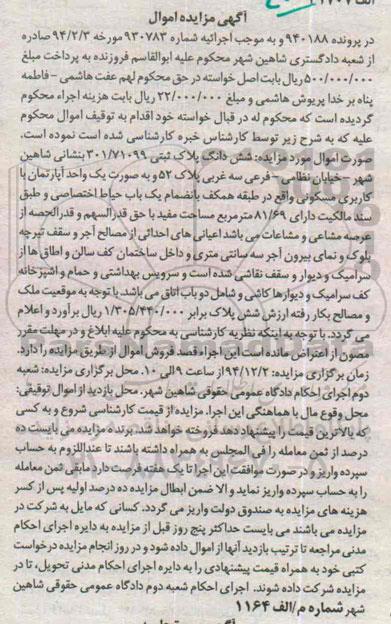 آگهی مزایده اموال
در پرونده ۹۴۰۱۸۸ و به موجب اجرائیه شماره ۹۳۰۷۸۳ مورخه ۹۴/۲/۳ صادره
از شعبه دادگستری شاهین شهر محکوم علیه ابوالقاسم فروزنده به پرداخت مبلغ
۵۰۰/۰۰۰/۰۰۰ ریال بابت اصل خواسته در حق محکوم لهم عفت هاشمی - فاطمه
پناه بر خدا پریوش هاشمی و مبلغ ۲۲/۰۰۰/۰۰۰ ریال بابت هزینه اجراء محکوم
گردیده است که محکوم له در قبال خواسته خود اقدام به توقیف اموال محکوم
علیه که به شرح زیر توسط کارشناس خبره کارشناسی شده است نموده است.
صورت اموال مورد مزایده: شش دانگ پلاک ثبتی ۳۰۱/۷۱۰۹۹ بنشانی شاهین
شهر - خیابان نظامی - فرعی سه غربی پلاک ۵۲ و به صورت یک واحد آپارتمان با
کاربری مسکونی واقع در طبقه همکف بانضمام یک باب حیاط اختصاصی و طبق
سند مالکیت دارای ۸۱/۶۹ مترمربع مساحت مفید با حق قدرالسهم و قدرالحصه از
عرصه مشاعی و مشاعات می باشد اعیانی های احداثی از مصالح آجر و سقف تیرچه
بلوک و نمای بیرون آجر سه سانتی متری و داخل ساختمان کف سالن و اطاق ها از
سرامیک و دیوار و سقف نقاشی شده است و سرویس بهداشتی و حمام و آشپزخانه
کف سرامیک و دیوارها کاشی و شامل دو باب اتاق می باشد. با توجه به موقعیت ملک
و مصالح بکار رفته ارزش شش پلاک برابر ۱/۳۰۵/۴۴۰/۰۰۰ ریال برآورد و اعلام
می گردد. با توجه به اینکه نظریه کارشناسی به محکوم علیه ابلاغ و در مهلت مقرر
مصون از اعتراض مانده است این اجراء قصد فروش اموال از طریق مزایده را دارد.
زمان برگزاری مزایده: ۹۴/۱۲/۲ از ساعت ۹ الی ۱۰. محل برگزاری مزایده: شعبه
دوم اجرای احکام دادگاه عمومی حقوقی شاهین شهر. محل بازدید از اموال توقیفی:
محل وقوع مال با هماهنگی این اجرا. مزایده از قیمت کارشناسی شروع و به کسی
که بالاترین قیمت را پیشنهاد دهد فروخته خواهد شد. برنده مزایده می بایست ده
درصد از ثمن معامله را فی المجلس به همراه داشته باشند تا عنداللزوم به حساب
سپرده واریز و در صورت موافقت این اجرا تا یک هفته فرصت دارد مابقی ثمن معامله
را به حساب سپرده واریز نماید و الا ضمن ابطال مزایده ده درصد اولیه پس از کسر
هزینه های مزایده به صندوق دولت واریز می گردد. کسانی که مایل به شرکت در
مزایده می باشند می بایست حداکثر پنج روز قبل از مزایده به دایره اجرای احکام
مدنی مراجعه تا ترتیب بازدید آنها از اموال داده شود و در روز انجام مزایده درخواست
کتبی خود به همراه قیمت پیشنهادی را به دایره اجرای احکام مدنی تحویل، تا در
مزایده شرکت داده شوند. اجرای احکام شعبه دوم دادگاه عمومی حقوقی شاهین
شهر شماره م/الف ۱۱۶۴